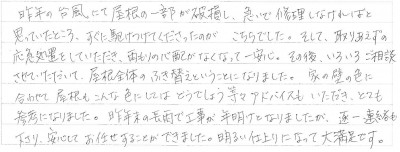 昨年の台風にて屋根の一部が破損し、急いで修理しなければと
思っていたところ、すぐに駆けつけてくださったのが こちらでした。そして、取り急ぎの
応急処置をしていただき、雨もりの心配がなくなって一安心。その後、いろいろご相談
させていただいて、屋根全体のふき替えということになりました。家の壁の色に
合わせて 屋根も こんな色にしては どうでしょう等々アドバイスも いただき、とても
参考になりました。昨年末の長雨で工事が年明けとなりましたが、逐一連絡も
下さり、安心して お任せすることができました。明るい仕上りになって大満足です。